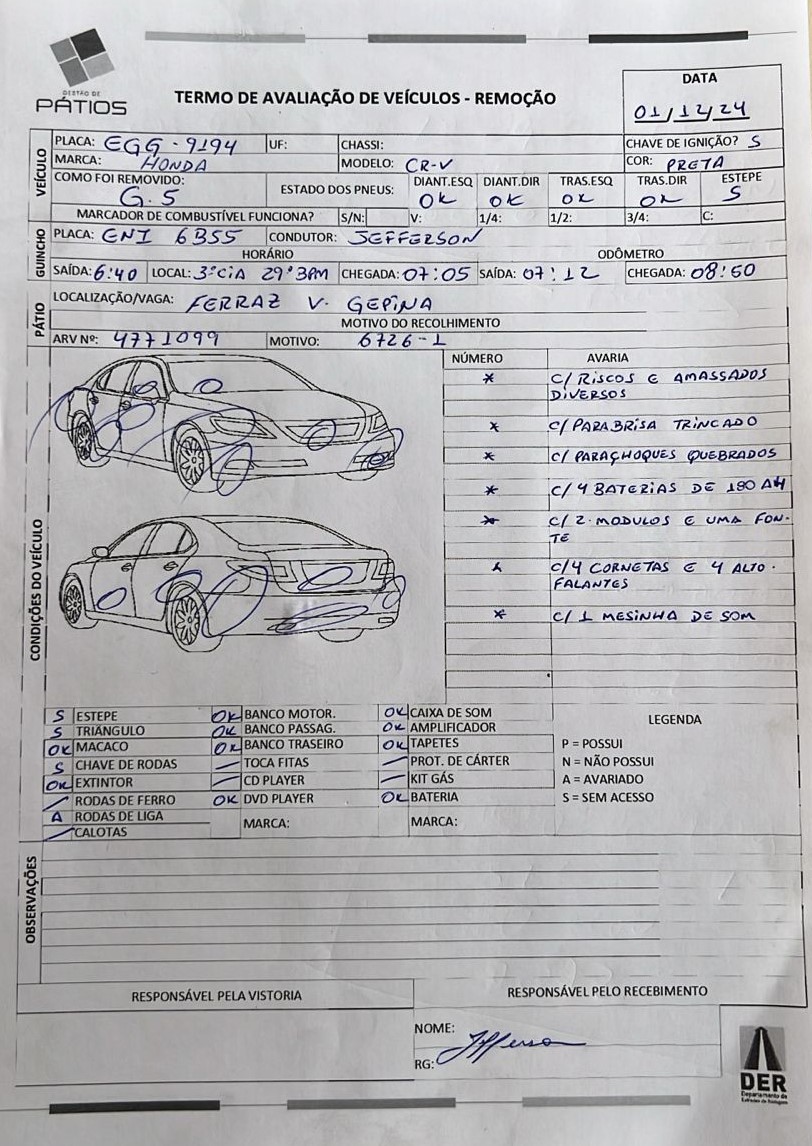 GESTÃO DE
PÁTIOS
TERMO DE AVALIAÇÃO DE VEÍCULOS - REMOÇÃO
DATA
01/12/24
VEÍCULO
PLACA: EGG-9194 UF: CHASSI: CHAVE DE IGNIÇÃO? S
MARCA: HONDA MODELO: CR-V COR: PRETA
COMO FOI REMOVIDO: G.5 ESTADO DOS PNEUS: DIANT.ESQ OK DIANT.DIR OK TRAS.ESQ OK TRAS.DIR OK ESTEPE S
MARCADOR DE COMBUSTÍVEL FUNCIONA? S/N: V: 1/4: 1/2: 3/4: C:
GUINCHO
PLACA: ENI 6355 CONDUTOR: JEFFERSON
HORÁRIO ODÔMETRO
SAÍDA: 6:40 LOCAL: 3ºCIA 29º3PM CHEGADA: 07:05 SAÍDA: 07:12 CHEGADA: 08:50
PÁTIO
LOCALIZAÇÃO/VAGA: FERRAZ V. GEPINA
MOTIVO DO RECOLHIMENTO
ARV Nº: 4771099 MOTIVO: 6726-1
CONDIÇÕES DO VEÍCULO
NÚMERO AVARIA
* C/ RISCOS E AMASSADOS
DIVERSOS
* C/ PARABRISA TRINCADO
* C/ PARACHOQUES QUEBRADOS
* C/ 4 BATERIAS DE 180 AH
* C/ 2 MODULOS E UMA FON-
TE
* C/ 4 CORNETAS E 4 ALTO-
FALANTES
* C/ 1 MESINHA DE SOM
S ESTEPE OK BANCO MOTOR. OK CAIXA DE SOM LEGENDA
S TRIÂNGULO OK BANCO PASSAG. OK AMPLIFICADOR
OK MACACO OK BANCO TRASEIRO OK TAPETES P = POSSUI
S CHAVE DE RODAS — TOCA FITAS — PROT. DE CÁRTER N = NÃO POSSUI
OK EXTINTOR — CD PLAYER — KIT GÁS A = AVARIADO
— RODAS DE FERRO OK DVD PLAYER OK BATERIA S = SEM ACESSO
A RODAS DE LIGA MARCA: MARCA:
— CALOTAS
OBSERVAÇÕES
RESPONSÁVEL PELA VISTORIA RESPONSÁVEL PELO RECEBIMENTO
NOME: Jefferson
RG:
DER
Departamento de
Estradas de Rodagem